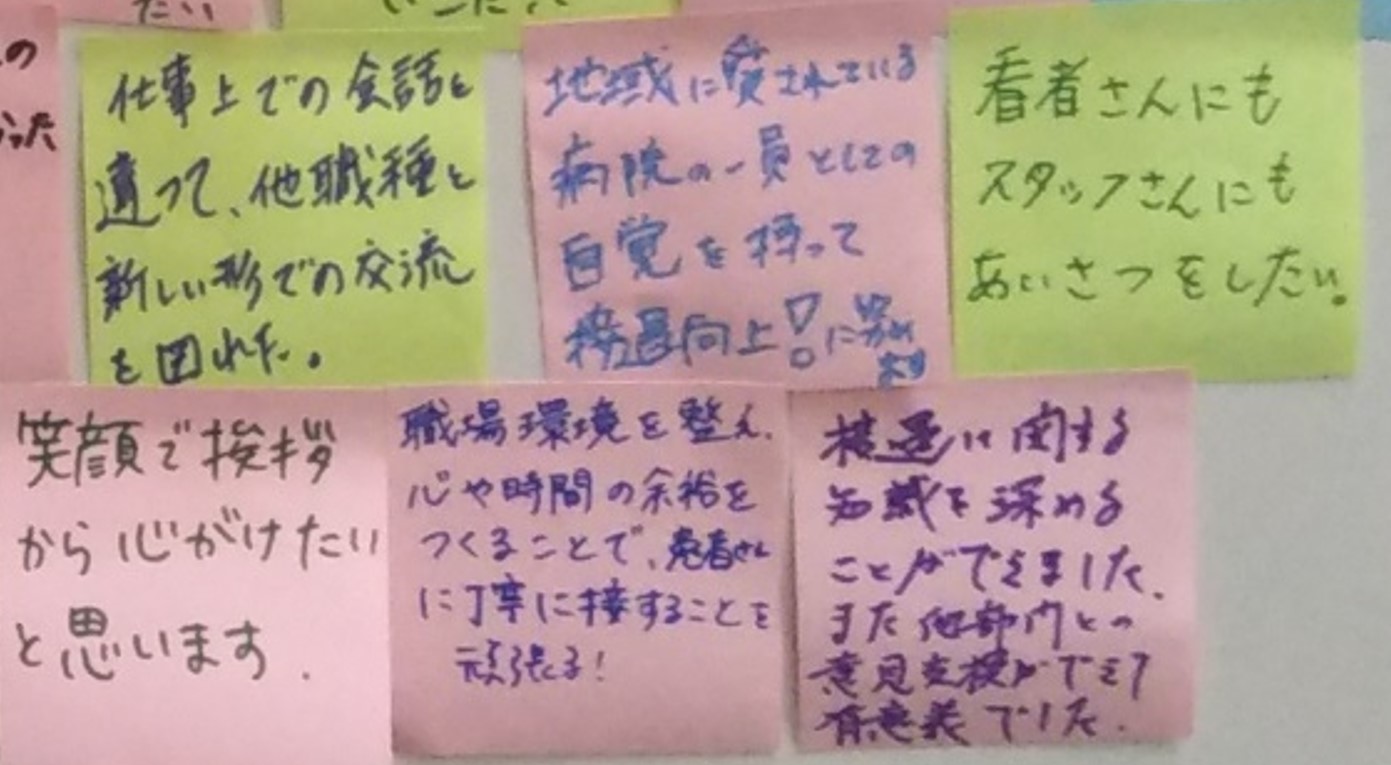 たい
の
った
仕事上での会話と
違って、他職種と
新しい形での交流
を図れた。
地域に愛されている
病院の一員としての
自覚を持って
接遇向上!に努め
ます
患者さんにも
スタッフさんにも
あいさつをしたい。
笑顔で挨拶
から心がけたい
と思います.
職場環境を整え、
心や時間の余裕を
つくることで、患者さん
に丁寧に接することを
頑張る!
接遇に関する
知識を深める
ことができました、
また他部門との
意見交換ができて
有意義でした.